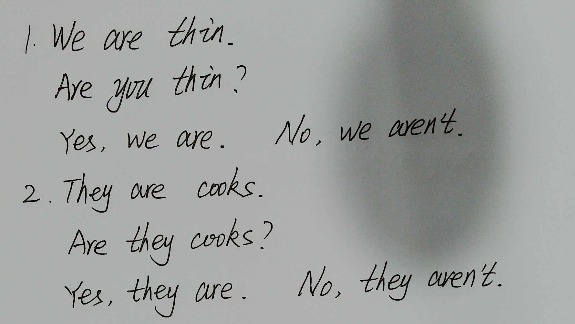 1. We are thin.
Are you thin?
Yes, we are. No, we aren't.
2. They are cooks.
Are they cooks?
Yes, they are. No, they aren't.